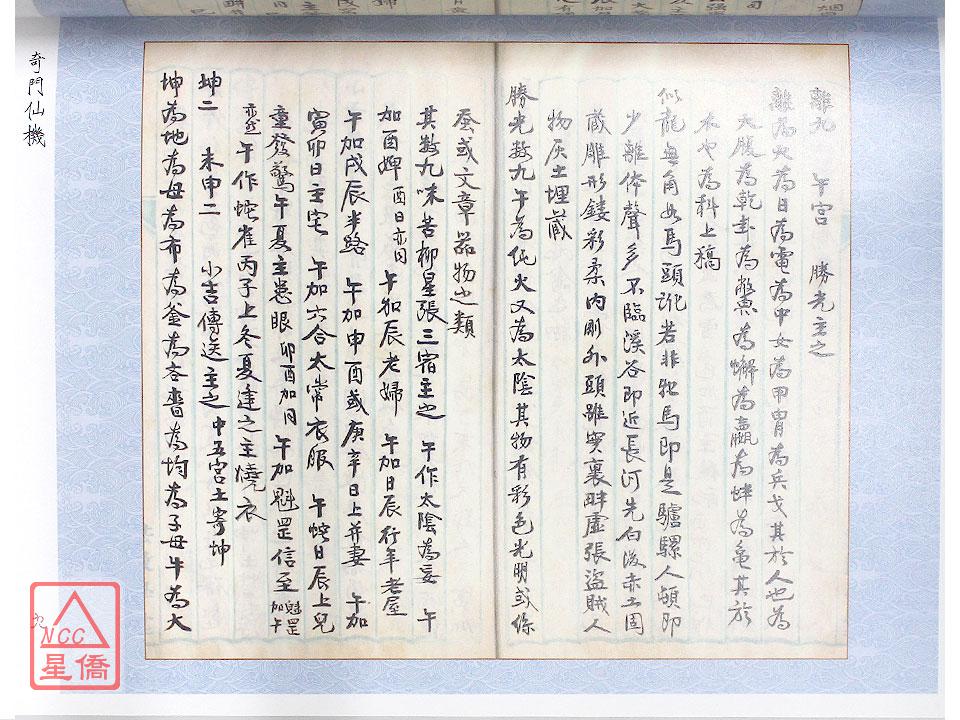 離九　午宮　勝光主之
離為火為日為電為中女為甲冑為兵戈其於人也為
大腹為乾卦為鱉為蟹為蠃為蚌為龜其於
木也為科上槁
似龍無角如馬頭訛若非牝馬即是驢騾人頓即
少離体聲多不臨溪谷即近長河先白後赤土固
藏雕形鏤彩柔內剛外頭雖實裏畔虛張盜賊人
物灰土埋藏
勝光数九午為化火又為太陰其物有彩色光明或絲
蚕或文章器物之類
其数九味苦柳星張三宿主之　午作太陰為妄　午
加酉婢酉日亦同　午加辰老婦　午加日辰行年老屋
午加戌辰半路　午加申酉或庚辛日上并妻　午加
寅卯日主宅　午加六合太常衣服　午蛇日辰上兒
童發驚午夏主患眼卯酉加同　午加魁罡信至魁罡加午
亦然　午作蛇雀丙子上冬夏逢之主燒衣
坤二　未申二　小吉傳送主之中五宮土寄坤
坤為地為母為布為釜為吝嗇為均為子母牛為大
奇門仙機
九
NCC
星僑